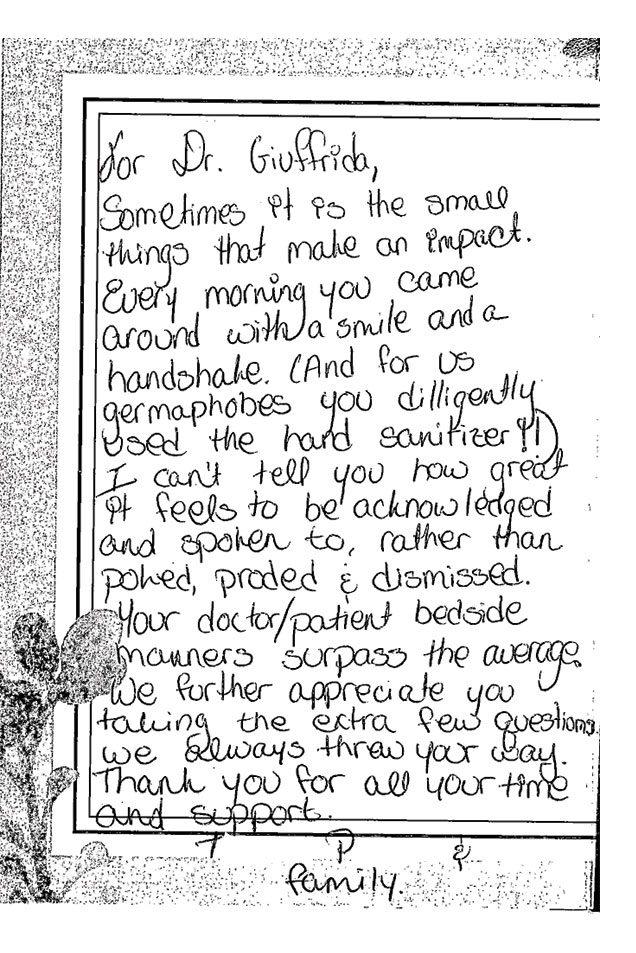 For Dr. Giuffrida,
Sometimes it is the small
things that make an impact.
Every morning you came
around with a smile and a
handshake. (And for us
germaphobes you dilligently
used the hand sanitizer!!)
I can't tell you how great
it feels to be acknowledged
and spoken to, rather than
poked, proded & dismissed.
Your doctor/patient bedside
manners surpass the average.
We further appreciate you
taking the extra few questions
we always threw your way.
Thank you for all your time
and support.
T P &
family.